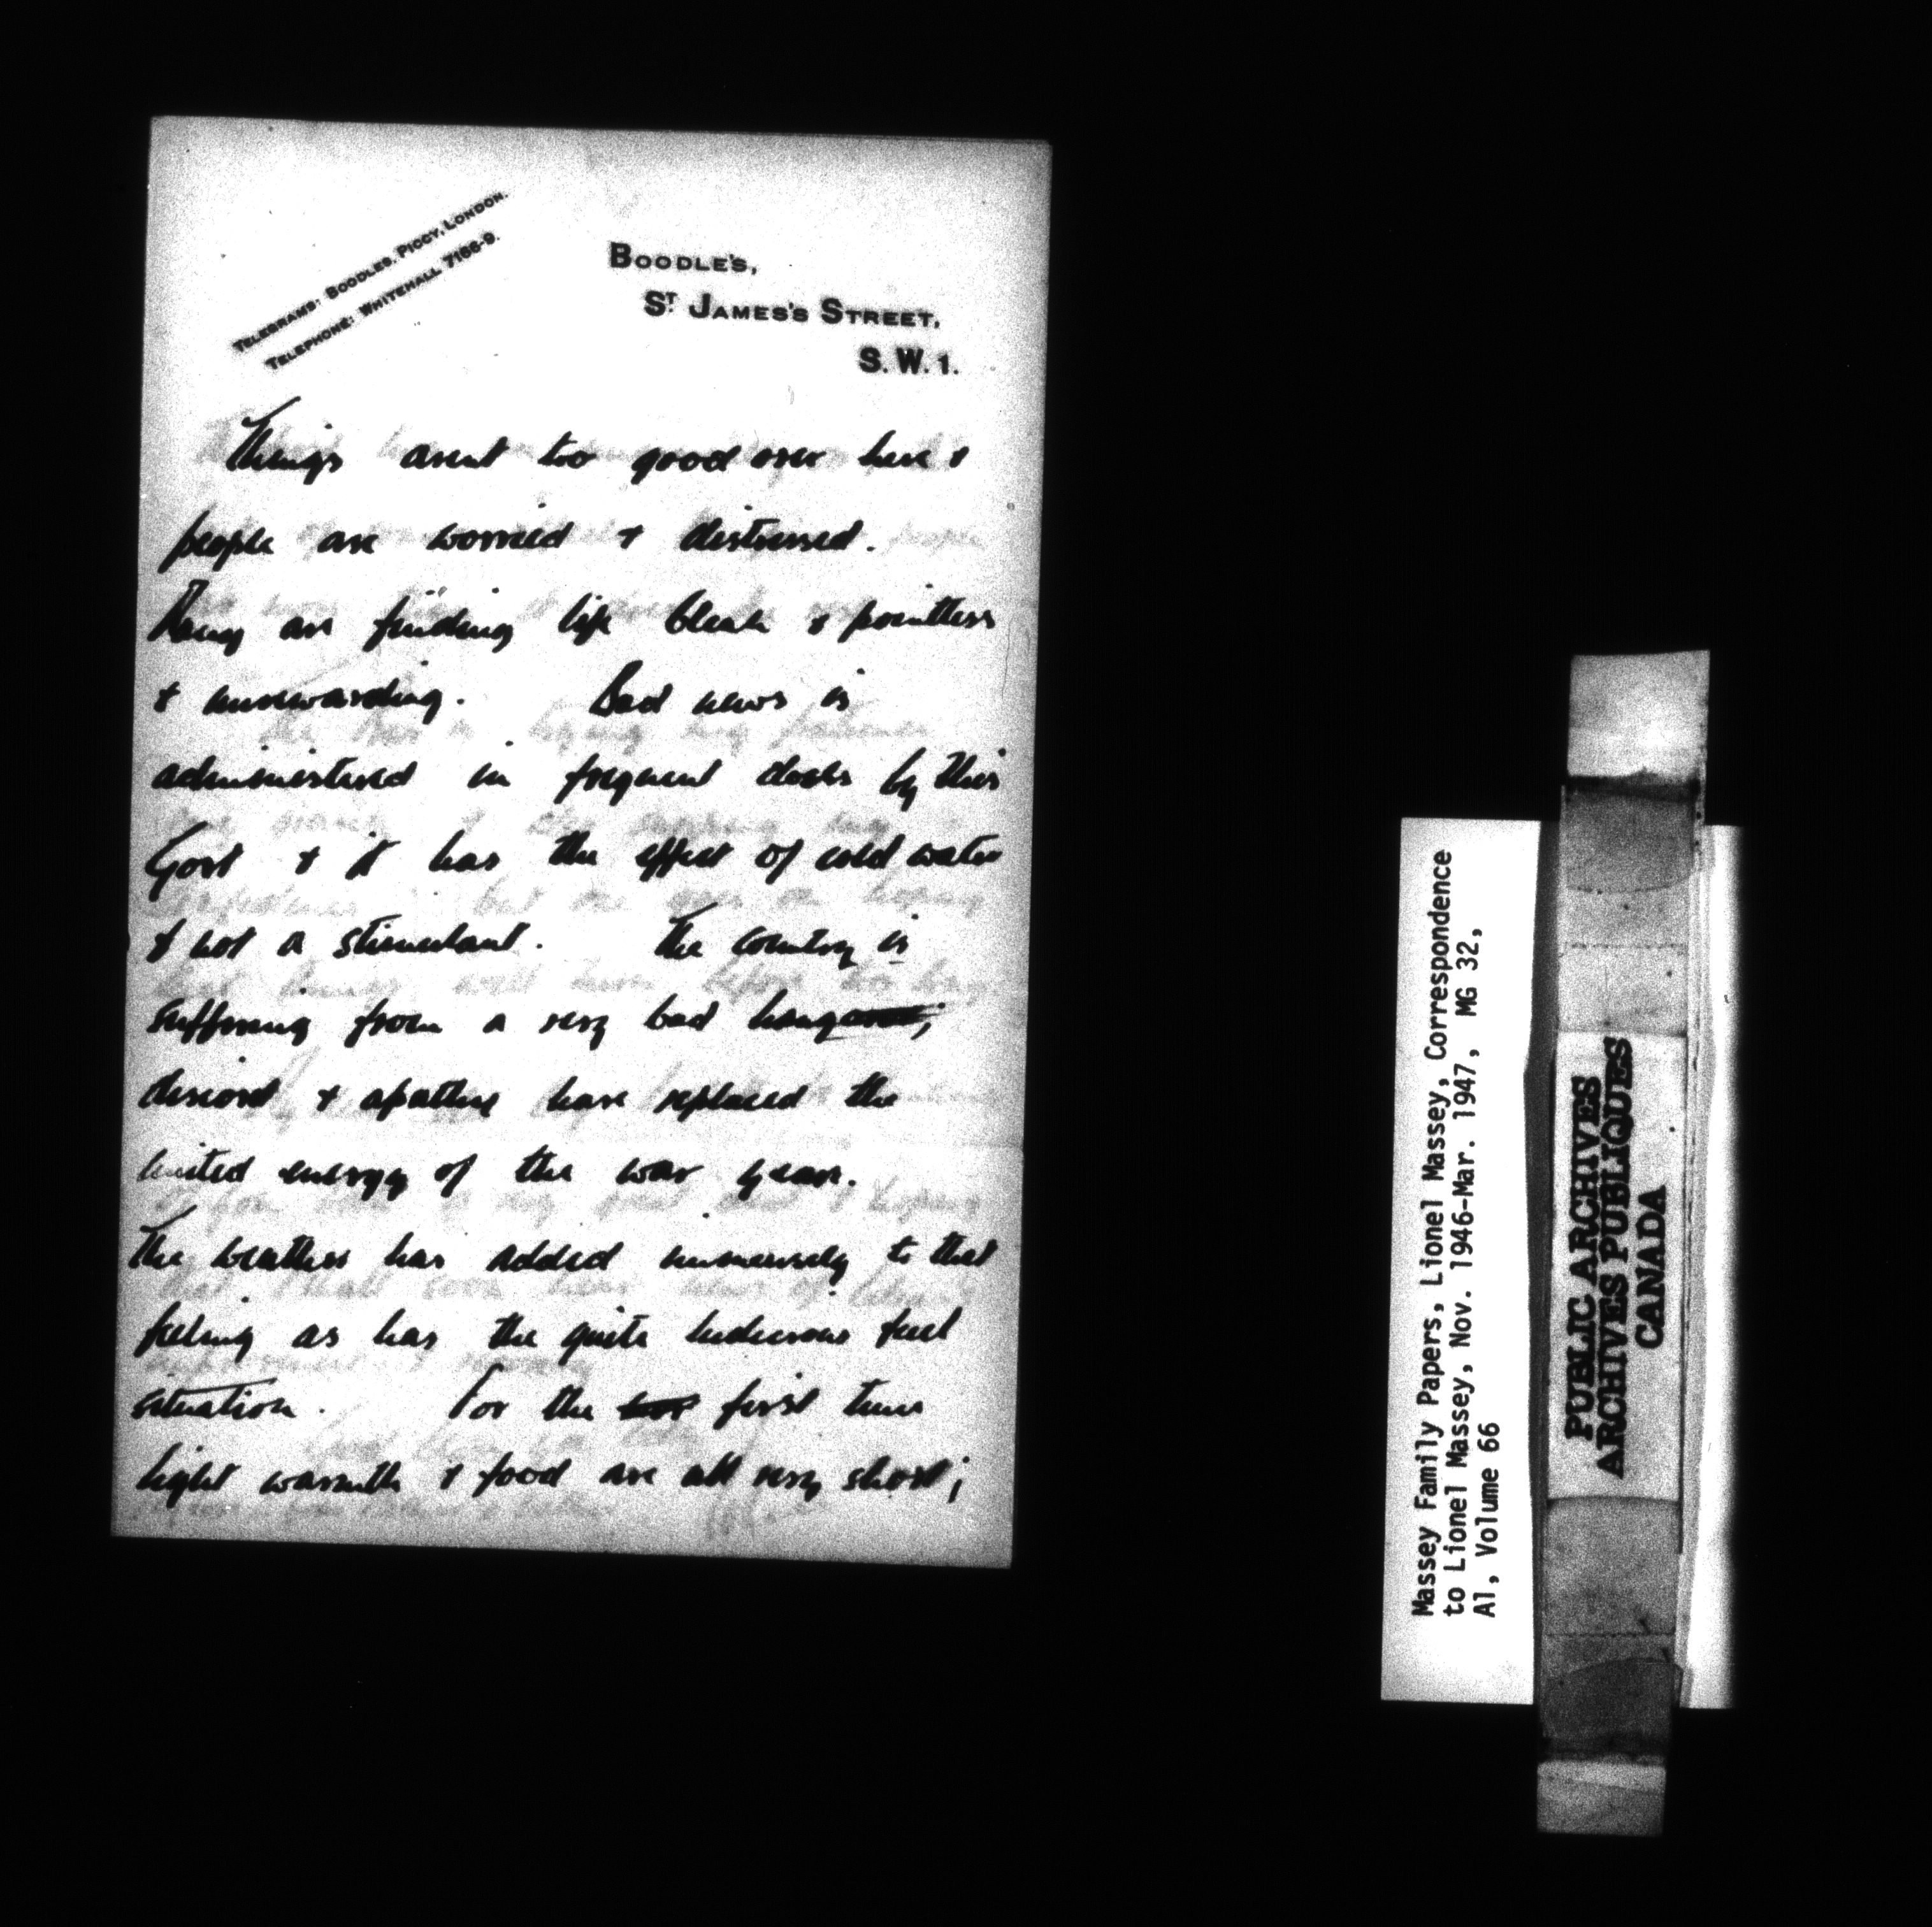 TELEGRAMS: BOODLES, PICCY, LONDON.
TELEPHONE: WHITEHALL 7166-9.
BOODLE'S,
ST JAMES'S STREET,
S.W.1.
Things arent too good over here &
people are worried & distressed.
Many are finding life bleak & pointless
& unrewarding. Bad news is
administered in frequent doses by this
Govt & it has the effect of cold water
& not a stimulant. The country is
suffering from a very bad
discord & apathy have replaced the
united energy of the war years.
The weather has added immensely to that
feeling as has the quite ludicrous fuel
situation. For the first time
light warmth & food are all very short;
Massey Family Papers, Lionel Massey, Correspondence
to Lionel Massey, Nov. 1946-Mar. 1947, MG 32,
A1, Volume 66
PUBLIC ARCHIVES
ARCHIVES PUBLIQUES
CANADA